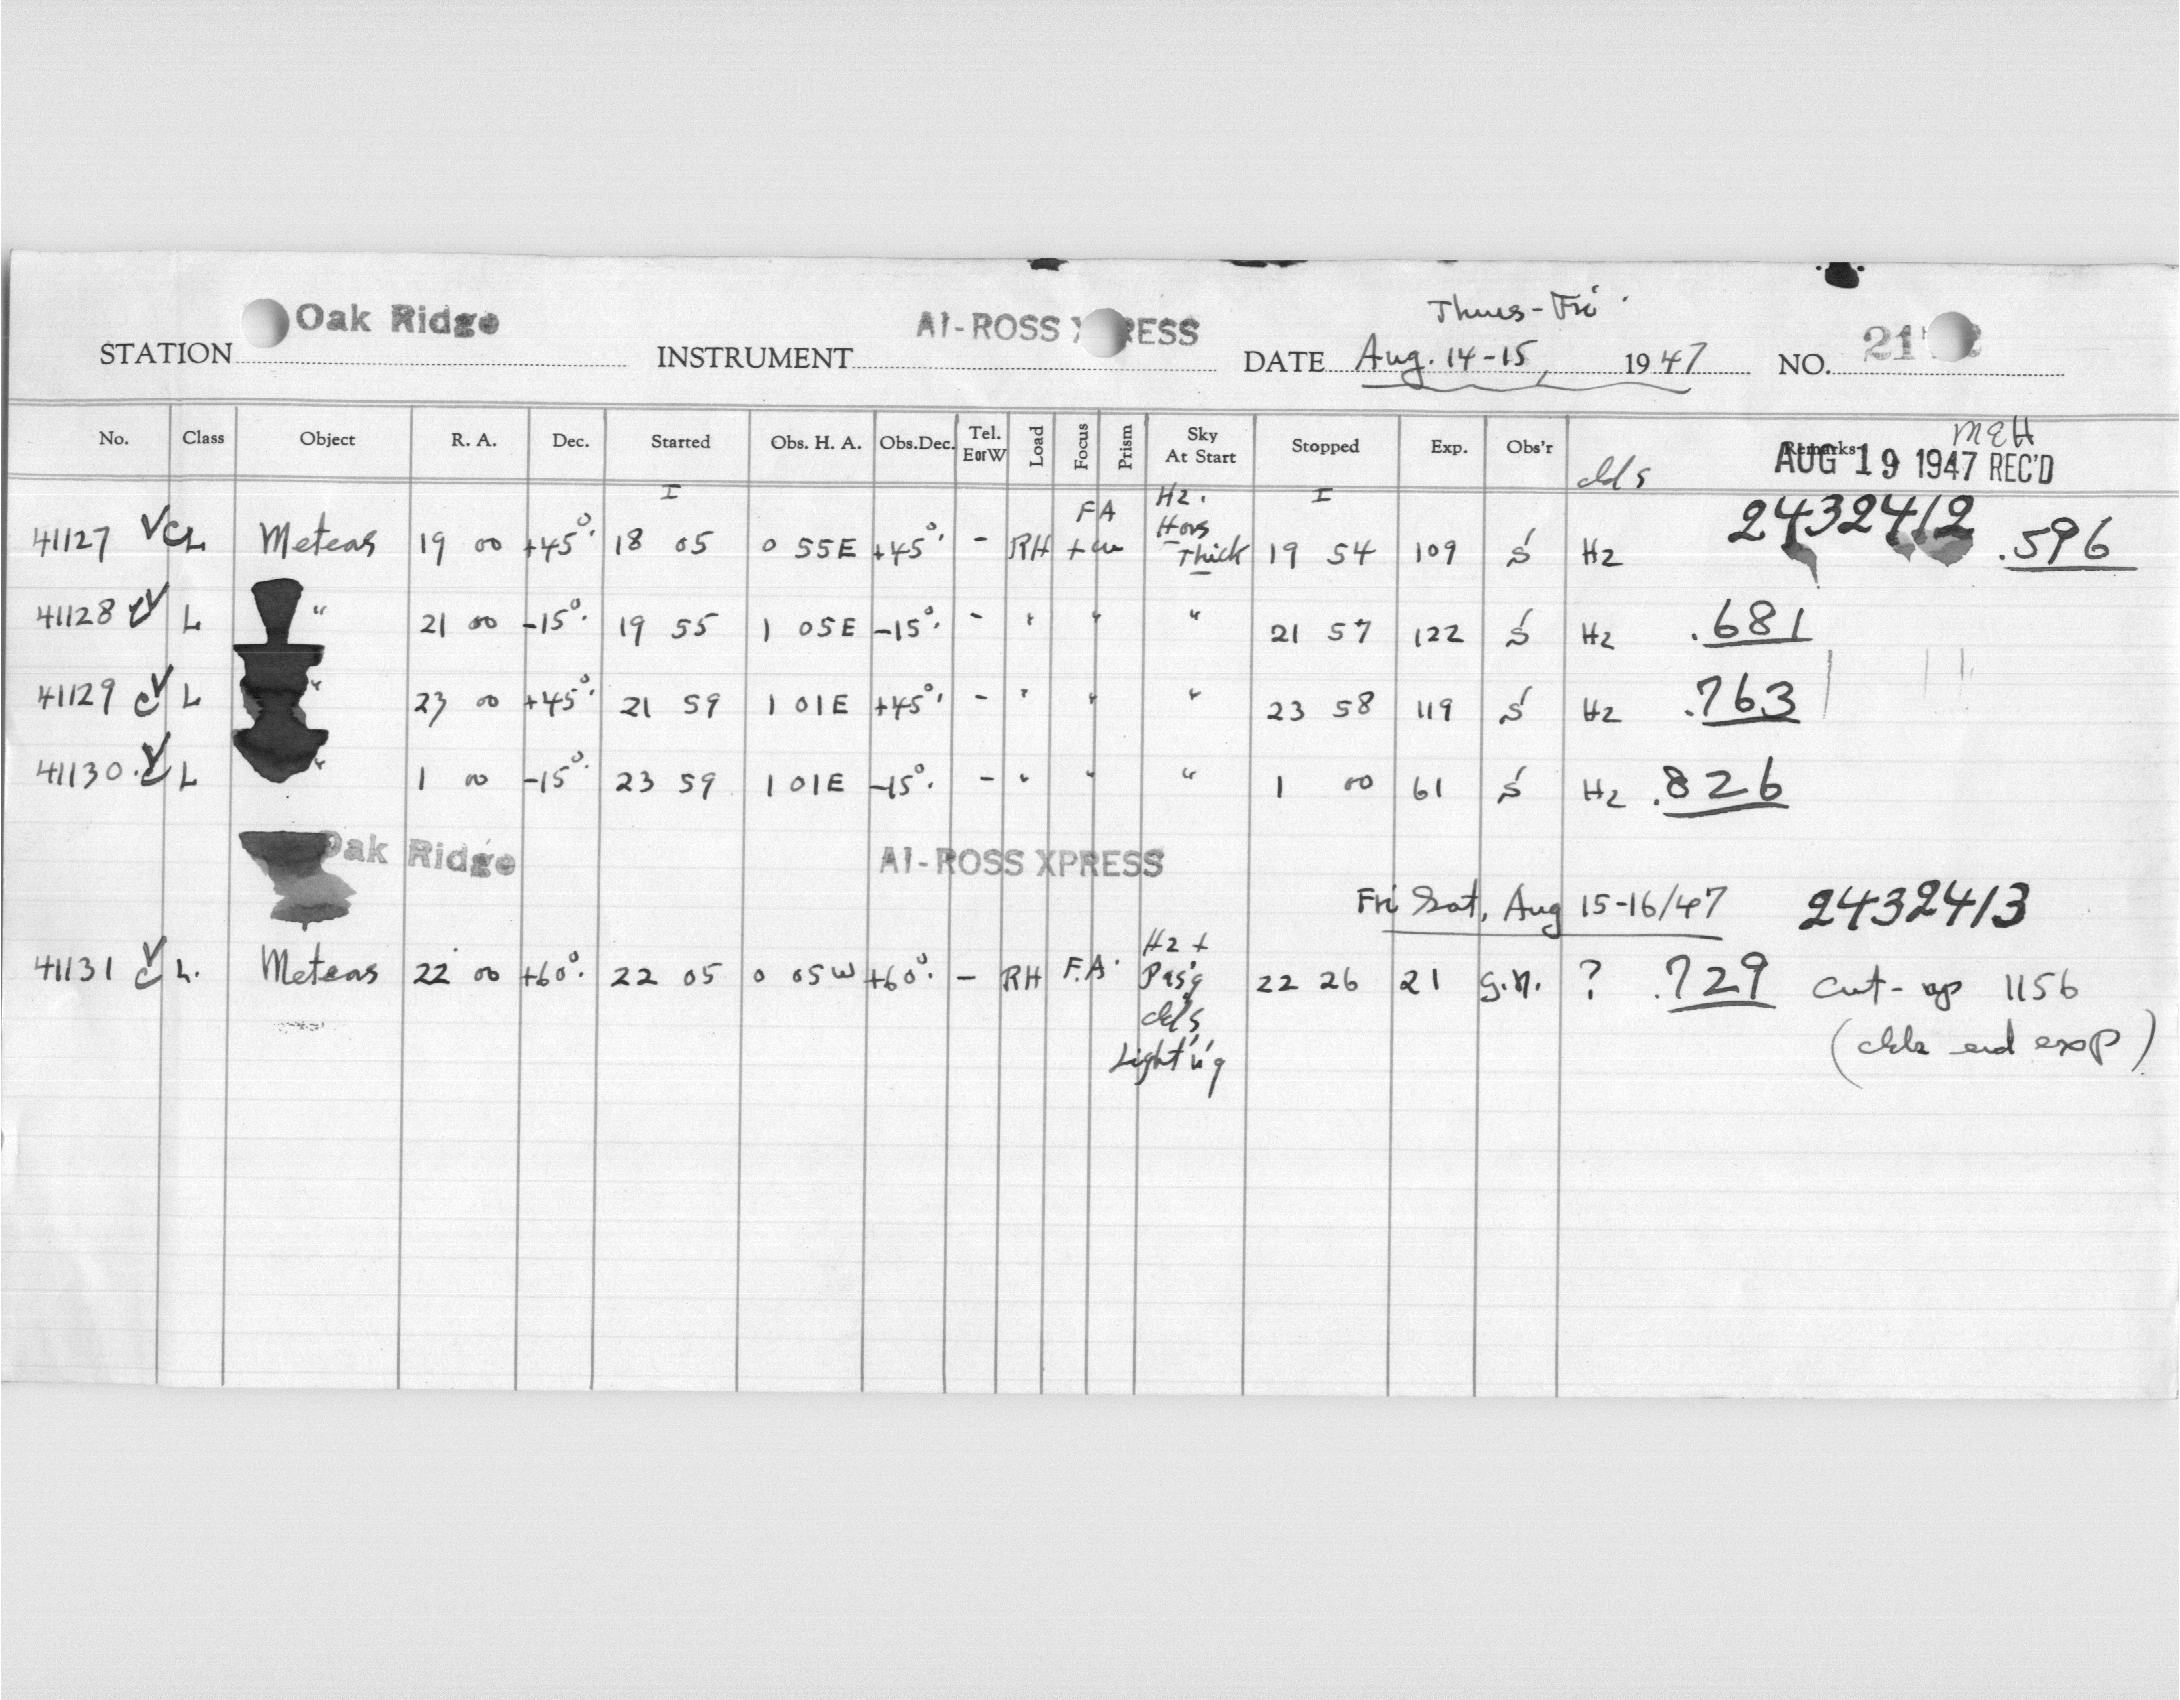 Oak Ridge AI-ROSS XPRESS Thurs-Fri
STATION INSTRUMENT DATE Aug. 14-15, 1947 NO.
No. Class Object R. A. Dec. Started Obs. H. A. Obs.Dec. Tel. EorW Load Focus Prism Sky At Start Stopped Exp. Obs'r Remarks
MEH
clds AUG 19 1947 REC'D
41127 CL Meteors 19 00 +45°. 18 05 0 55E +45°. - RH FA Hz. Hors Thick 19 54 109 S Hz 2432412 .596
41128 c L " 21 00 -15°. 19 55 1 05E -15°. - " " " 21 57 122 S Hz .681
41129 c L " 23 00 +45°. 21 59 1 01E +45°. - " " " 23 58 119 S Hz .763
41130 c L " 1 00 -15°. 23 59 1 01E -15°. - " " " 1 00 61 S Hz .826
Oak Ridge AI-ROSS XPRESS
Fri Sat, Aug 15-16/47 2432413
41131 c L. Meteors 22 00 +60°. 22 05 0 05W +60°. - RH F.A. Hz + Pas'g cld's Light'n'g 22 26 21 G.N. ? .729 cut-up 1156
(clds end exp)